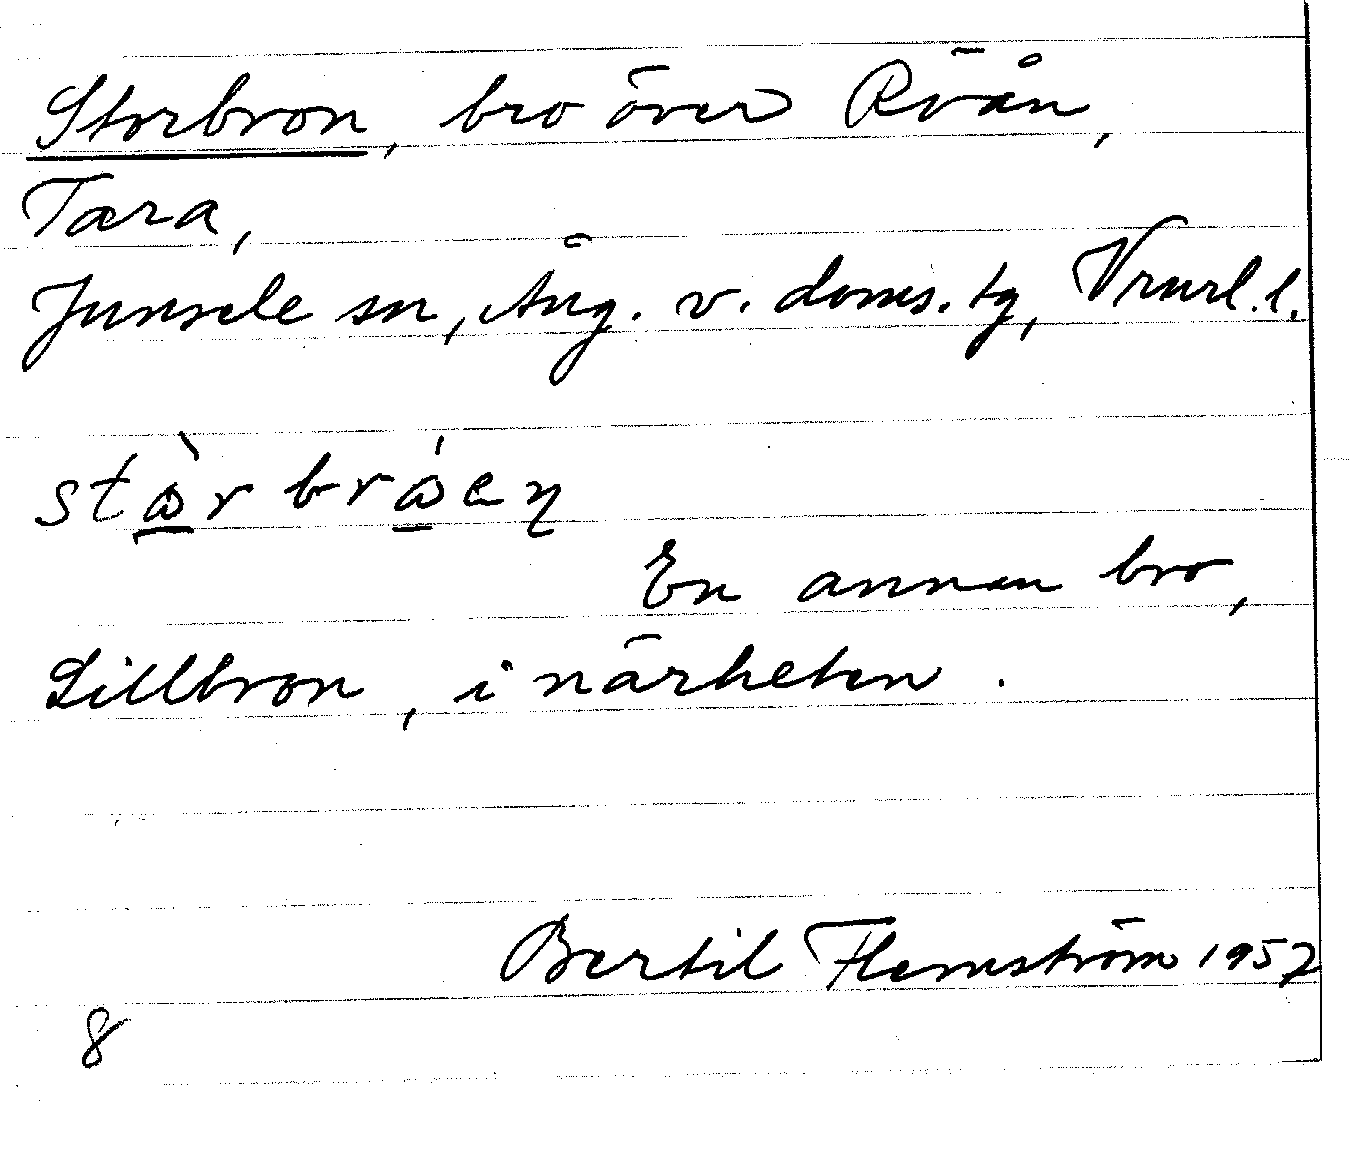 Storbron, bro över Rörån,
Tara,
Junsele sn, Ång. v. doms. tg, Vrnrl. l.
En annan bro,
Lillbron, i närheten.
Bertil Flemström 1957
8